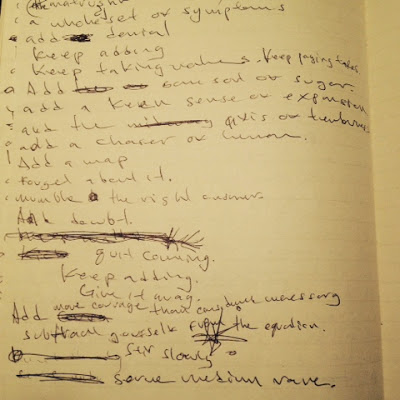 a whole set of symptoms
add denial
Keep adding
Keep taking values. Keep paying taxes.
Add some sort of sugar.
add a keen sense of expansion
and the axis of
add a chaser of lemon.
Add a map
Forget about it.
Mumble the right answer.
Add doubt.
quit counting.
Keep adding.
Give it away.
Add more courage than you think necessary
subtract yourself from the equation.
Stir slowly
serve medium rare.